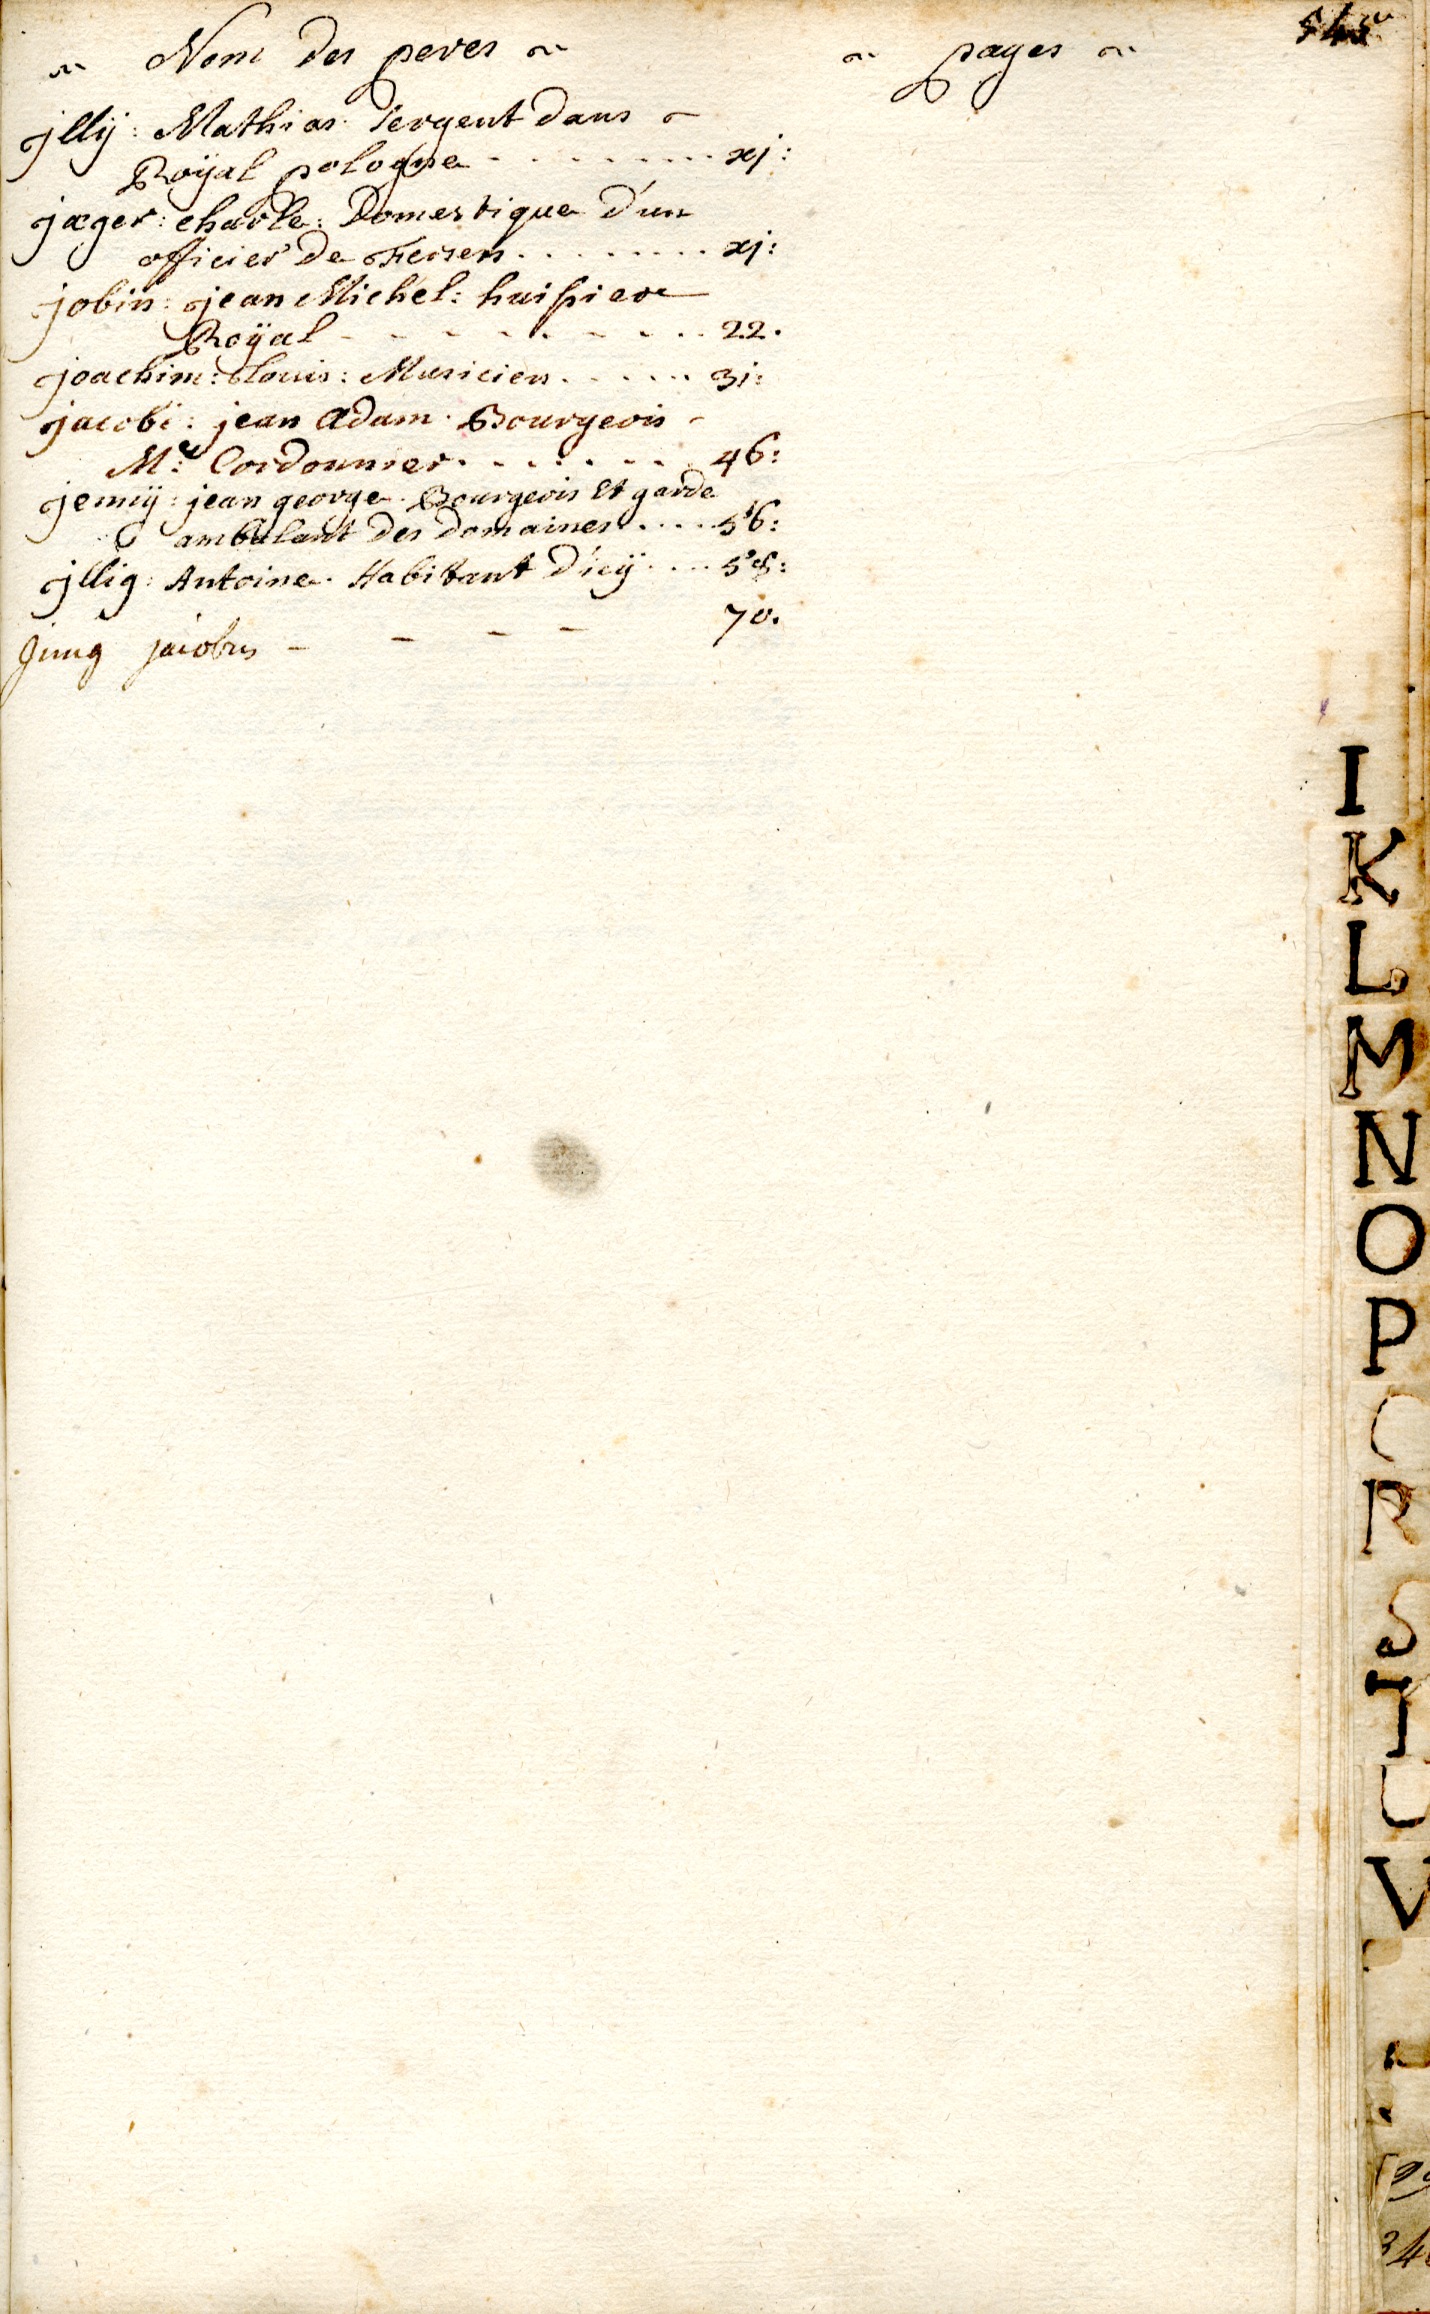 ~ Nom des peres ~ ~ pages ~
jllÿ : Mathias Sergent dans ~
Roÿal pologne - - - - - - - - xj :
jæger : charle : Domestique d'un
officier de Fersen . . . . . . . . xj :
jobin : jean Michel : huissier
Roÿal - - - - - - - - . . 22 .
joachim : Louis : Musicien . . . . . . 3j :
jacobi : jean Adam . Bourgeois -
M.e Cordonnier . . . . . . . . 46 :
jennÿ : jean george . Bourgeois Et garde
ambulant des domaines . . . . 56 :
jllig : Antoine . Habitant d'icÿ . . . . 58 :
Jung jacobus - - - - 70 .
I
K
L
M
N
O
P
R
S
T
U
V